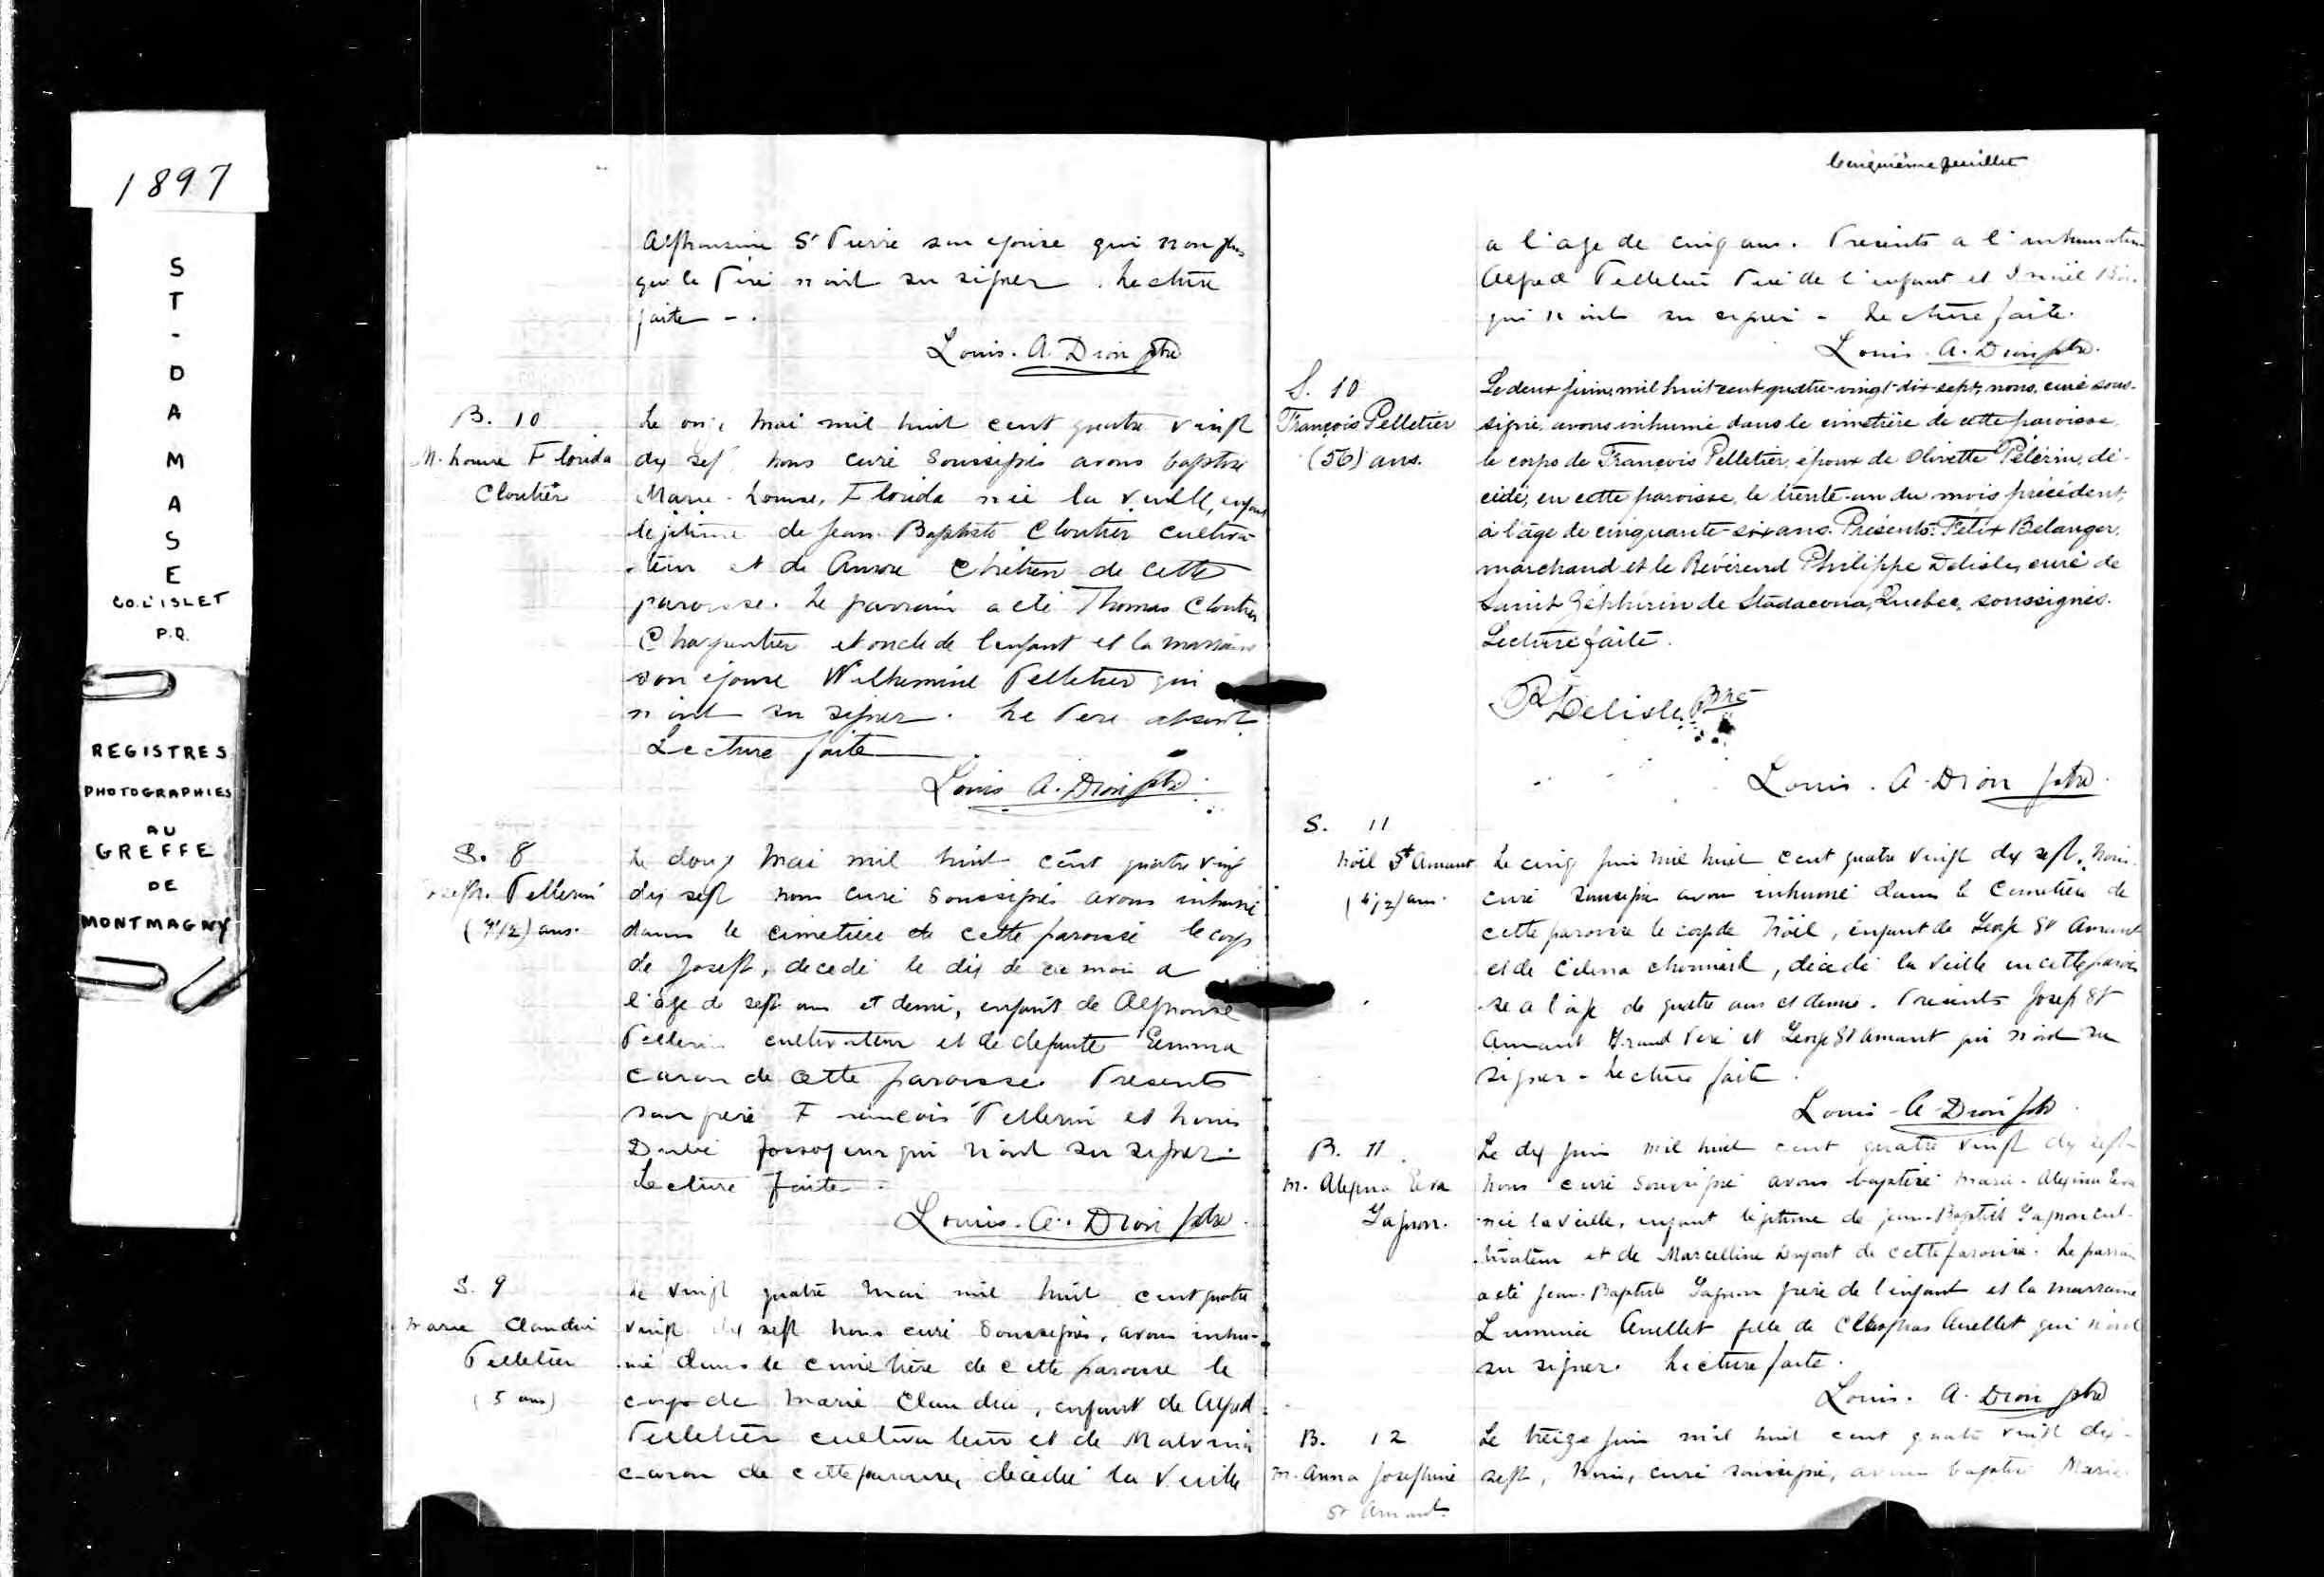 1897
S
T
-
D
A
M
A
S
E
CO. L'ISLET
P.Q.
REGISTRES
PHOTOGRAPHIES
AU
GREFFE
DE
MONTMAGNY
Alphonsine St Pierre son épouse qui non plus
que le Père n'ont su signer. Lecture
faite -.
Louis. A. Dion ptre
B. 10
M. Louise Florida
Cloutier
Le onze Mai mil huit cent quatre vingt
dix sept nous curé soussigné avons baptisé
Marie-Louise, Florida née la veille, enfant
légitime de Jean-Baptiste Cloutier cultiva-
-teur et de Aurore Chrétien de cette
paroisse. Le parrain a été Thomas Cloutier
Charpentier et oncle de l'enfant et la marraine
son épouse Wilhemine Pelletier qui
n'ont su signer. Le Père absent.
Lecture faite
Louis A. Dion ptre
S. 8
Joseph. Pellerin
(7 1/2) ans.
Le douze Mai mil huit cent quatre vingt
dix sept nous curé soussigné avons inhumé
dans le cimetière de cette paroisse le corps
de Joseph, décédé le dix de ce mois a
l'âge de sept ans et demi, enfant de Alphonse
Pellerin cultivateur et de defunte Emma
Caron de cette paroisse. Présents
son père François Pellerin et Louis
Dubé fossoyeur qui n'ont su signer.
Lecture faite.
Louis. A. Dion ptre
S. 9
Marie Claudia
Pelletier
(5 ans)
Le vingt quatre Mai mil huit cent quatre
vingt dix sept nous curé soussigné, avons inhu-
-mé dans le cimetière de cette paroisse le
corps de Marie Claudia, enfant de Alfred
Pelletier cultivateur et de Malvina
Caron de cette paroisse, décédée la veille
Cinquième feuillet
a l'age de cinq ans. Présents a l'inhumation
Alfred Pelletier Père de l'enfant et
qui n'ont su signer - Lecture faite.
Louis. A. Dion ptre.
S. 10
François Pelletier
(56) ans.
Le deux juin, mil huit-cent-quatre-vingt-dix-sept, nous, curé sous-
signé, avons inhumé dans le cimetière de cette paroisse,
le corps de François Pelletier, époux de Olivette Pélerin, dé-
cédé, en cette paroisse, le trente-un du mois précédent,
à l'âge de cinquante-six ans. Présents: Félix Bélanger,
marchand et le Révérend Philippe Delisle, curé de
Saint Zéphirin de Stadacona, Québec, soussignés.
Lecture faite.
P. Delisle, Ptre
Louis. A. Dion ptre.
S. 11
Noël St Amant
(4 1/2) ans.
Le cinq juin mil huit cent quatre vingt dix sept, nous
curé soussigné avons inhumé dans le Cimetière de
cette paroisse le corps de Noël, enfant de George St Amant
et de Célina Chouinard, décédé la veille en cette parois-
-se a l'age de quatre ans et demi. Présents Joseph St
Amant Grand Père et George St Amant qui n'ont su
signer - Lecture faite.
Louis - A. Dion ptre
B. 11
M. Alexina Eva
Gagnon.
Le dix juin mil huit cent quatre vingt dix sept
nous curé soussigné avons baptisé Marie-Alexina Eva
née la veille, enfant légitime de Jean-Baptiste Gagnon cul-
-tivateur et de Marcelline Dupont de cette paroisse. Le parrain
a été Jean-Baptiste Gagnon frère de l'enfant et la marraine
Lumina Ouellet fille de Cléophas Ouellet qui n'ont
su signer. Lecture faite.
Louis. A. Dion ptre
B. 12
M. Anna Josephine
St Amant
Le treize juin mil huit cent quatre vingt dix-
sept, nous, curé soussigné, avons baptisé Marie-